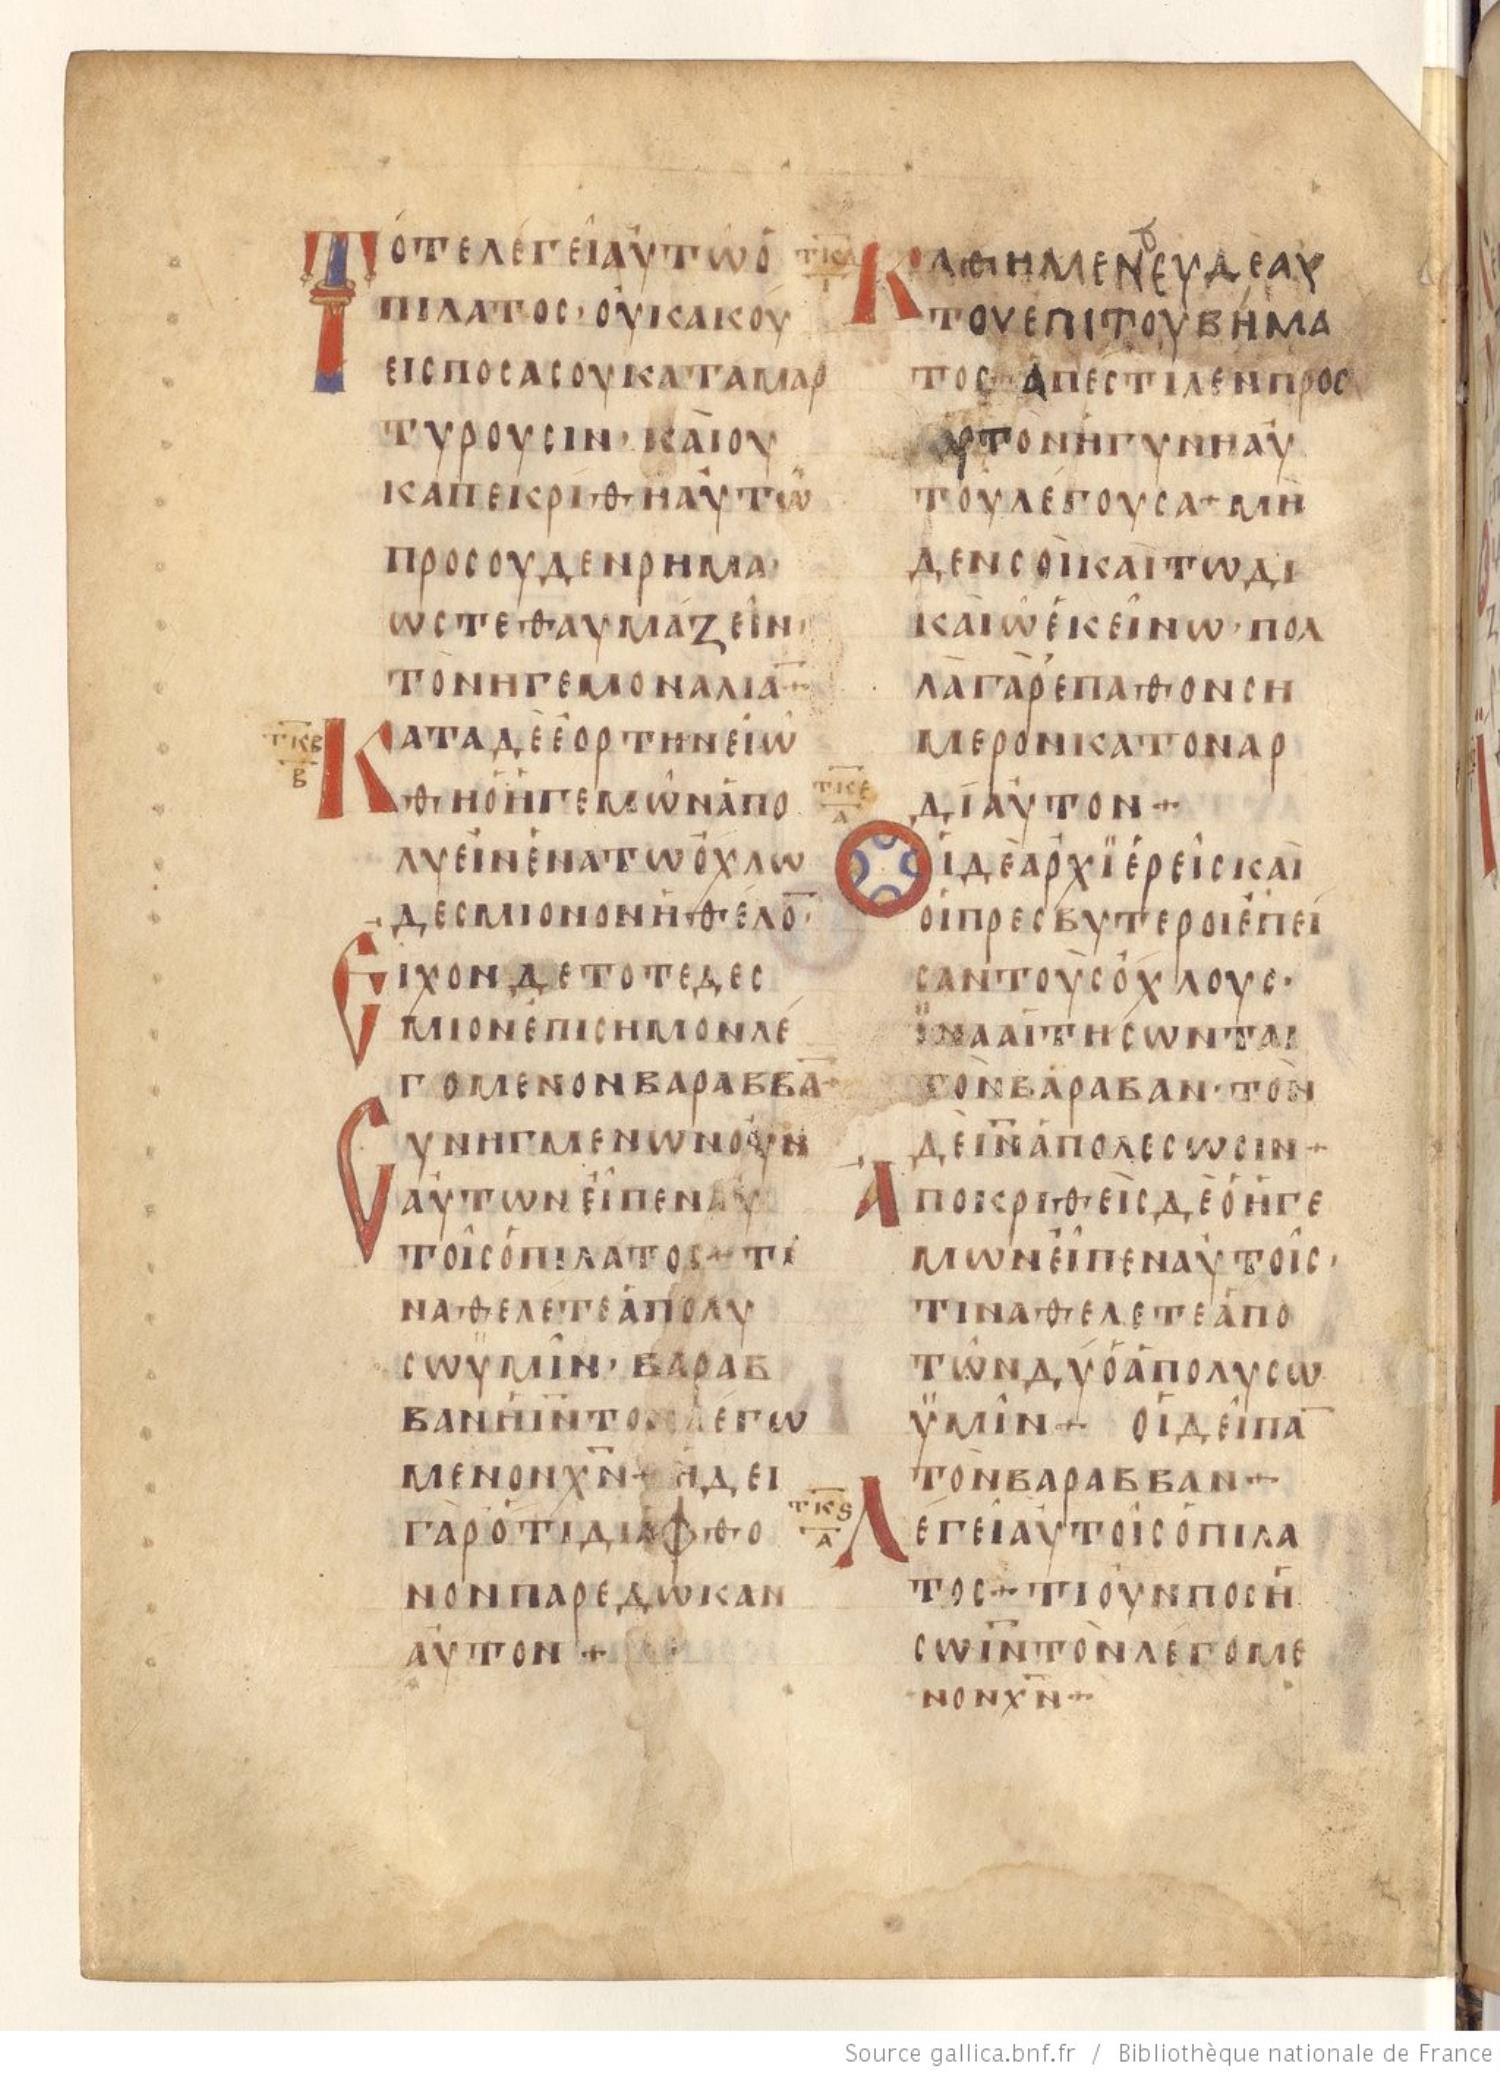 ΤΌΤΕΛΕΓΕΙΑΥΤΩὉ
ΠΙΛΑΤΟΣ· ΟΥΚΑΚΟΥ
ΕΙΣΠΟΣΑΣΟΥΚΑΤΑΜΑΡ
ΤΥΡΟΥΣΙΝ· ΚΑΙΟΥ
ΚΑΠΕΚΡΙΘΗΑΥΤΩ
ΠΡΟΣΟΥΔΕΝΡΗΜΑ·
ΩΣΤΕΘΑΥΜΑΖΕΙΝ·
ΤΟΝΗΓΕΜΟΝΑΛΙΑ̅+
ΤΚΒ
Β
ΚΑΤΑΔΕΕΟΡΤΗΝΕΙΩ
ΘΗΟΗΓΕΜΩΝΑΠΟ
ΛΥΕΙΝΕΝΑΤΩΟΧΛΩ
ΔΕΣΜΙΟΝΟΝΗΘΕΛΟ̅·
ΕΙΧΟΝΔΕΤΟΤΕΔΕΣ
ΜΙΟΝΕΠΙΣΗΜΟΝΛΕ
ΓΟΜΕΝΟΝΒΑΡΑΒΒΑ̅+
ΣΥΝΗΓΜΕΝΩΝΟΥΝ
ΑΥΤΩΝΕΙΠΕΝΑΥ
ΤΟΙΣΟΠΙΛΑΤΟΣ+ΤΙ
ΝΑΘΕΛΕΤΕΑΠΟΛΥ
ΣΩΫΜΙΝ· ΒΑΡΑΒ
ΒΑΝΗΙ̅Ν̅ΤΟΝΛΕΓΩ
ΜΕΝΟΝΧ̅Ν̅+ΗΔΕΙ
ΓΑΡΟΤΙΔΙΑΦΘΟ
ΝΟΝΠΑΡΕΔΩΚΑΝ
ΑΥΤΟΝ+
ΤΚΔ
Ι
ΚΑΘΗΜΕΝΕΥΔΕΑΥ
ΤΟΥΕΠΙΤΟΥΒΗΜΑ
ΤΟΣ ΑΠΕΣΤΙΛΕΝΠΡΟΣ
ΑΥΤΟΝΗΓΥΝΗΑΥ
ΤΟΥΛΕΓΟΥΣΑ+ΜΗ
ΔΕΝΣΟΙΚΑΙΤΩΔΙ
ΚΑΙΩΕΚΕΙΝΩ·ΠΟΛ
ΛΑΓΑΡΕΠΑΘΟΝΣΗ
ΜΕΡΟΝΚΑΤΟΝΑΡ
ΔΙΑΥΤΟΝ+
ΤΚΕ
Α
ΟΙΔΕΑΡΧΪΕΡΕΙΣΚΑΙ
ΟΙΠΡΕΣΒΥΤΕΡΟΙΕΠΕΙ
ΣΑΝΤΟΥΣΟΧΛΟΥΣ·
ΪΝΑΑΙΤΗΣΩΝΤΑΙ
ΤΟΝΒΑΡΑΒΑΝ·ΤΟΝ
ΔΕΙ̅Ν̅ΑΠΟΛΕΣΩΣΙΝ+
ΑΠΟΚΡΙΘΕΙΣΔΕΟΗΓΕ
ΜΩΝΕΙΠΕΝΑΥΤΟΙΣ·
ΤΙΝΑΘΕΛΕΤΕΑΠΟ
ΤΩΝΔΥΟΑΠΟΛΥΣΩ
ΫΜΙΝ+ ΟΙΔΕΙΠΑ̅
ΤΟΝΒΑΡΑΒΒΑΝ+
ΤΚϚ
Α
ΛΕΓΕΙΑΥΤΟΙΣΟΠΙΛΑ
ΤΟΣ+ΤΙΟΥΝΠΟΙΗ
ΣΩΙ̅Ν̅ΤΟΝΛΕΓΟΜΕ
ΝΟΝΧ̅Ν̅+
Source gallica.bnf.fr / Bibliothèque nationale de France